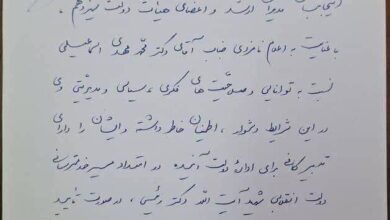 اینجانب مدیر ارشد و اعضای هیأت دولت سیزدهم،
با عنایت به اعلام نامزدی جناب آقای دکتر محمد مهدی اسماعیلی
نسبت به توانایی و صلاحیّت های فکری، سیاسی و مدیریتی وی
در این شرایط دشوار، اطمینان خاطر داشته و ایشان را دارای
تدبیر کافی برای ادارهٔ دولت آینده در امتداد مسیر خدمترسانی
دولت انقلابی شهید آیت الله دکتر رئیسی، در صورت تأیید